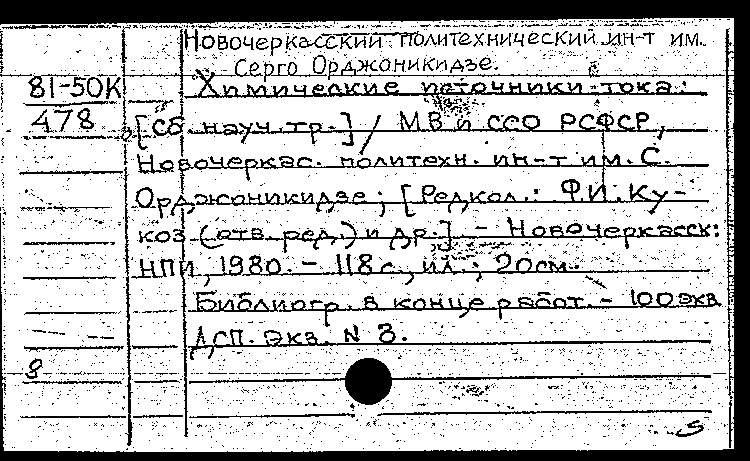 Новочеркасский политехнический ин-т им.
Серго Орджоникидзе.
81-50К Химические источники тока:
478 [Сб. науч. тр.] / МВ и ССО РСФСР,
Новочеркас. политехн. ин-т им. С.
Орджоникидзе; [Редкол.: Ф.И. Ку-
коз (отв. ред.) и др.]. - Новочеркасск:
НПИ, 1980. - 118 с., ил.; 20 см.
Библиогр. в конце работ. - 100 экз.
ДСП. Экз. N 3.